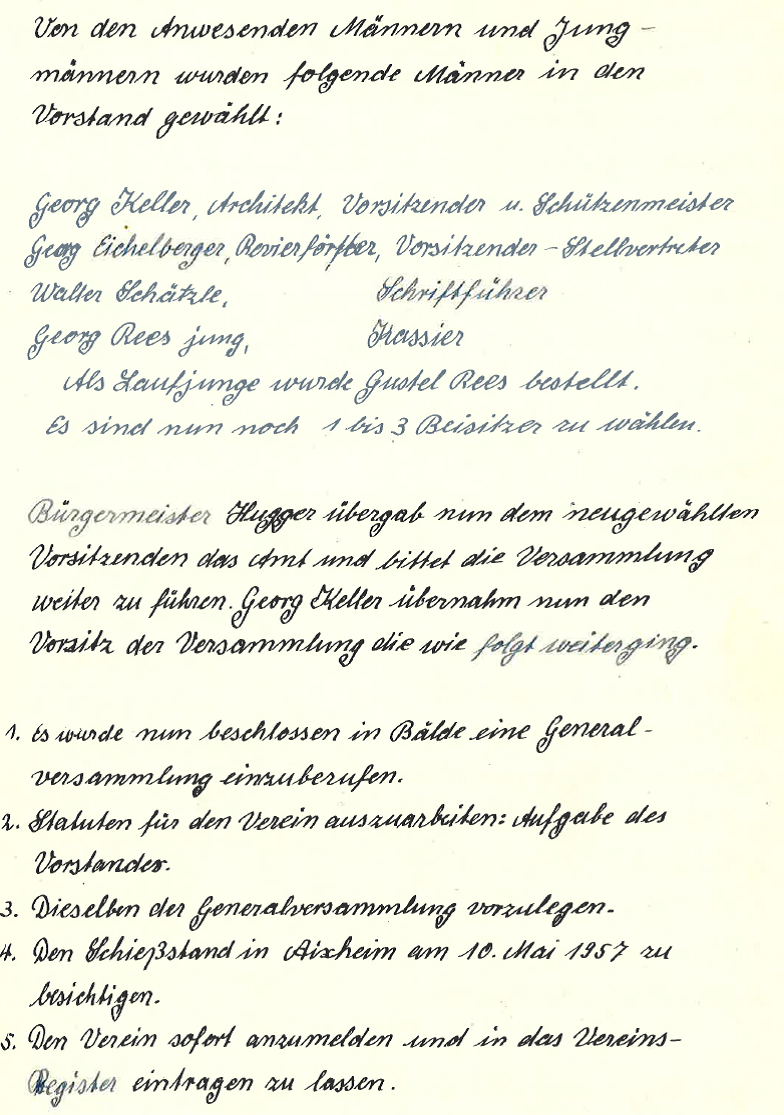 Von den Anwesenden Männern und Jung-
männern wurden folgende Männer in den
Vorstand gewählt:
Georg Keller, Architekt, Vorsitzender u. Schützenmeister
Georg Eichelberger, Revierförster, Vorsitzender-Stellvertreter
Walter Schätzle, Schriftführer
Georg Rees jung, Kassier
Als Laufjunge wurde Gustel Rees bestellt.
Es sind nun noch 1 bis 3 Beisitzer zu wählen.
Bürgermeister Hugger übergab nun dem neugewählten
Vorsitzenden das Amt und bittet die Versammlung
weiter zu führen. Georg Keller übernahm nun den
Vorsitz der Versammlung die wie folgt weiterging.
1. Es wurde nun beschlossen in Bälde eine General-
versammlung einzuberufen.
2. Statuten für den Verein auszuarbeiten: Aufgabe des
Vorstandes.
3. Dieselben der Generalversammlung vorzulegen.
4. Den Schießstand in Aixheim am 10. Mai 1957 zu
besichtigen.
5. Den Verein sofort anzumelden und in das Vereins-
Register eintragen zu lassen.